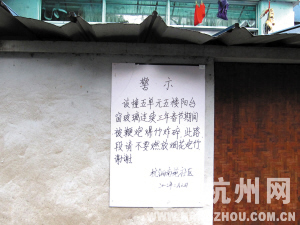 警示
该幢五单元五楼阳台
窗玻璃连续三年春节期间
被鞭炮爆竹炸碎 此路
段请不要燃放烟花炮竹
谢谢
社区
杭州网
WWW.HANGZHOU.COM.CN